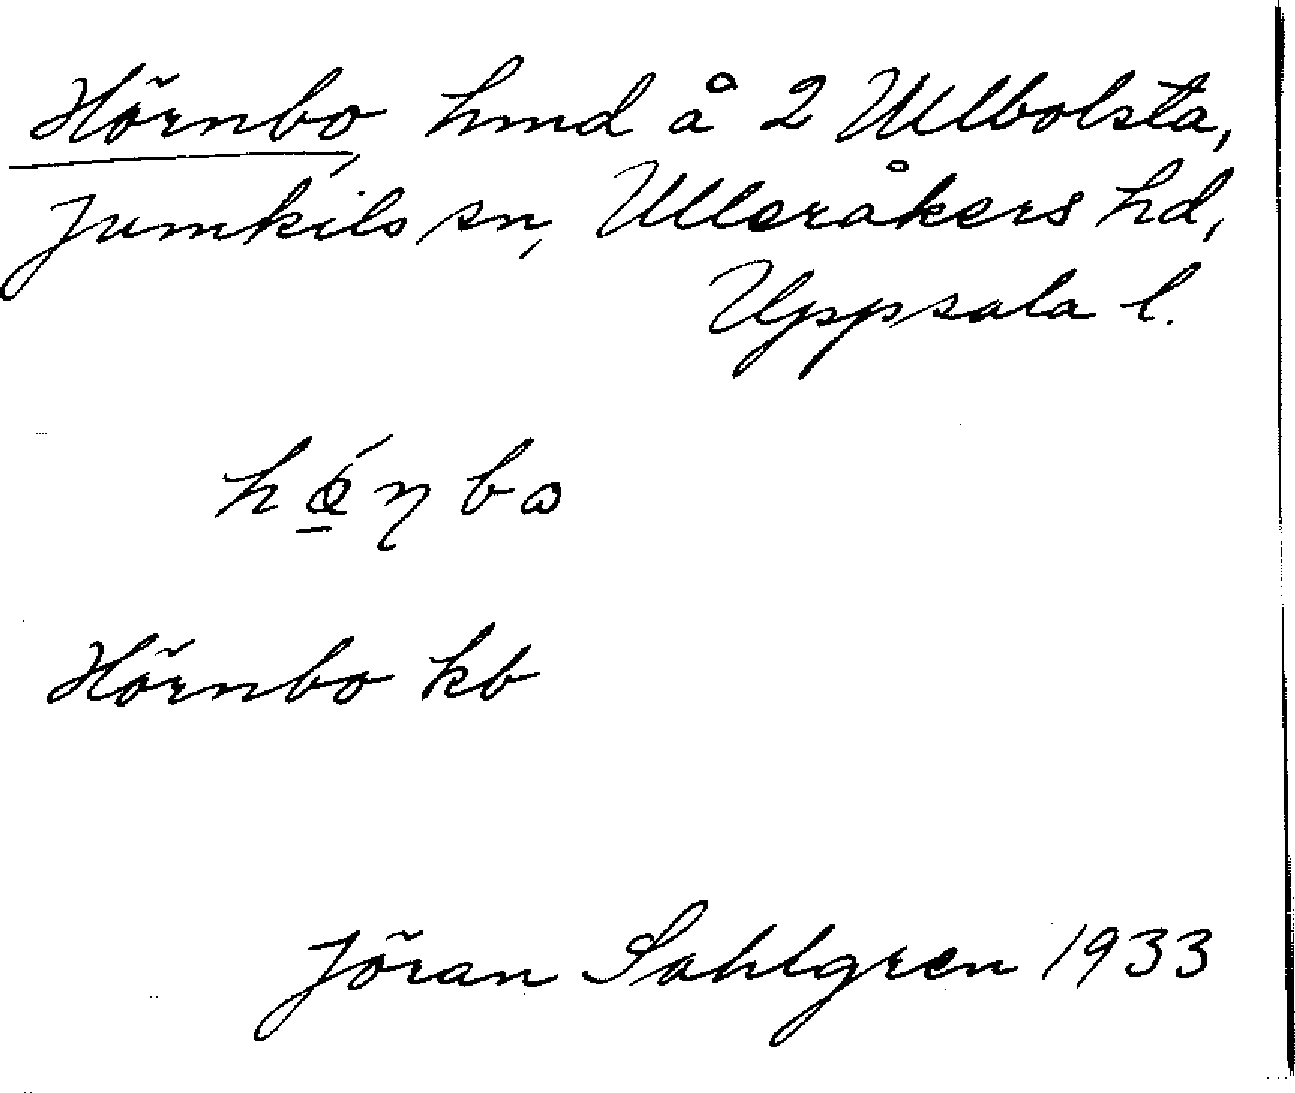 Hörnbo, hmd å 2 Ullbolsta,
Jumkils sn, Ulleråkers hd,
Uppsala l.
Hörnbo kb
Jöran Sahlgren 1933